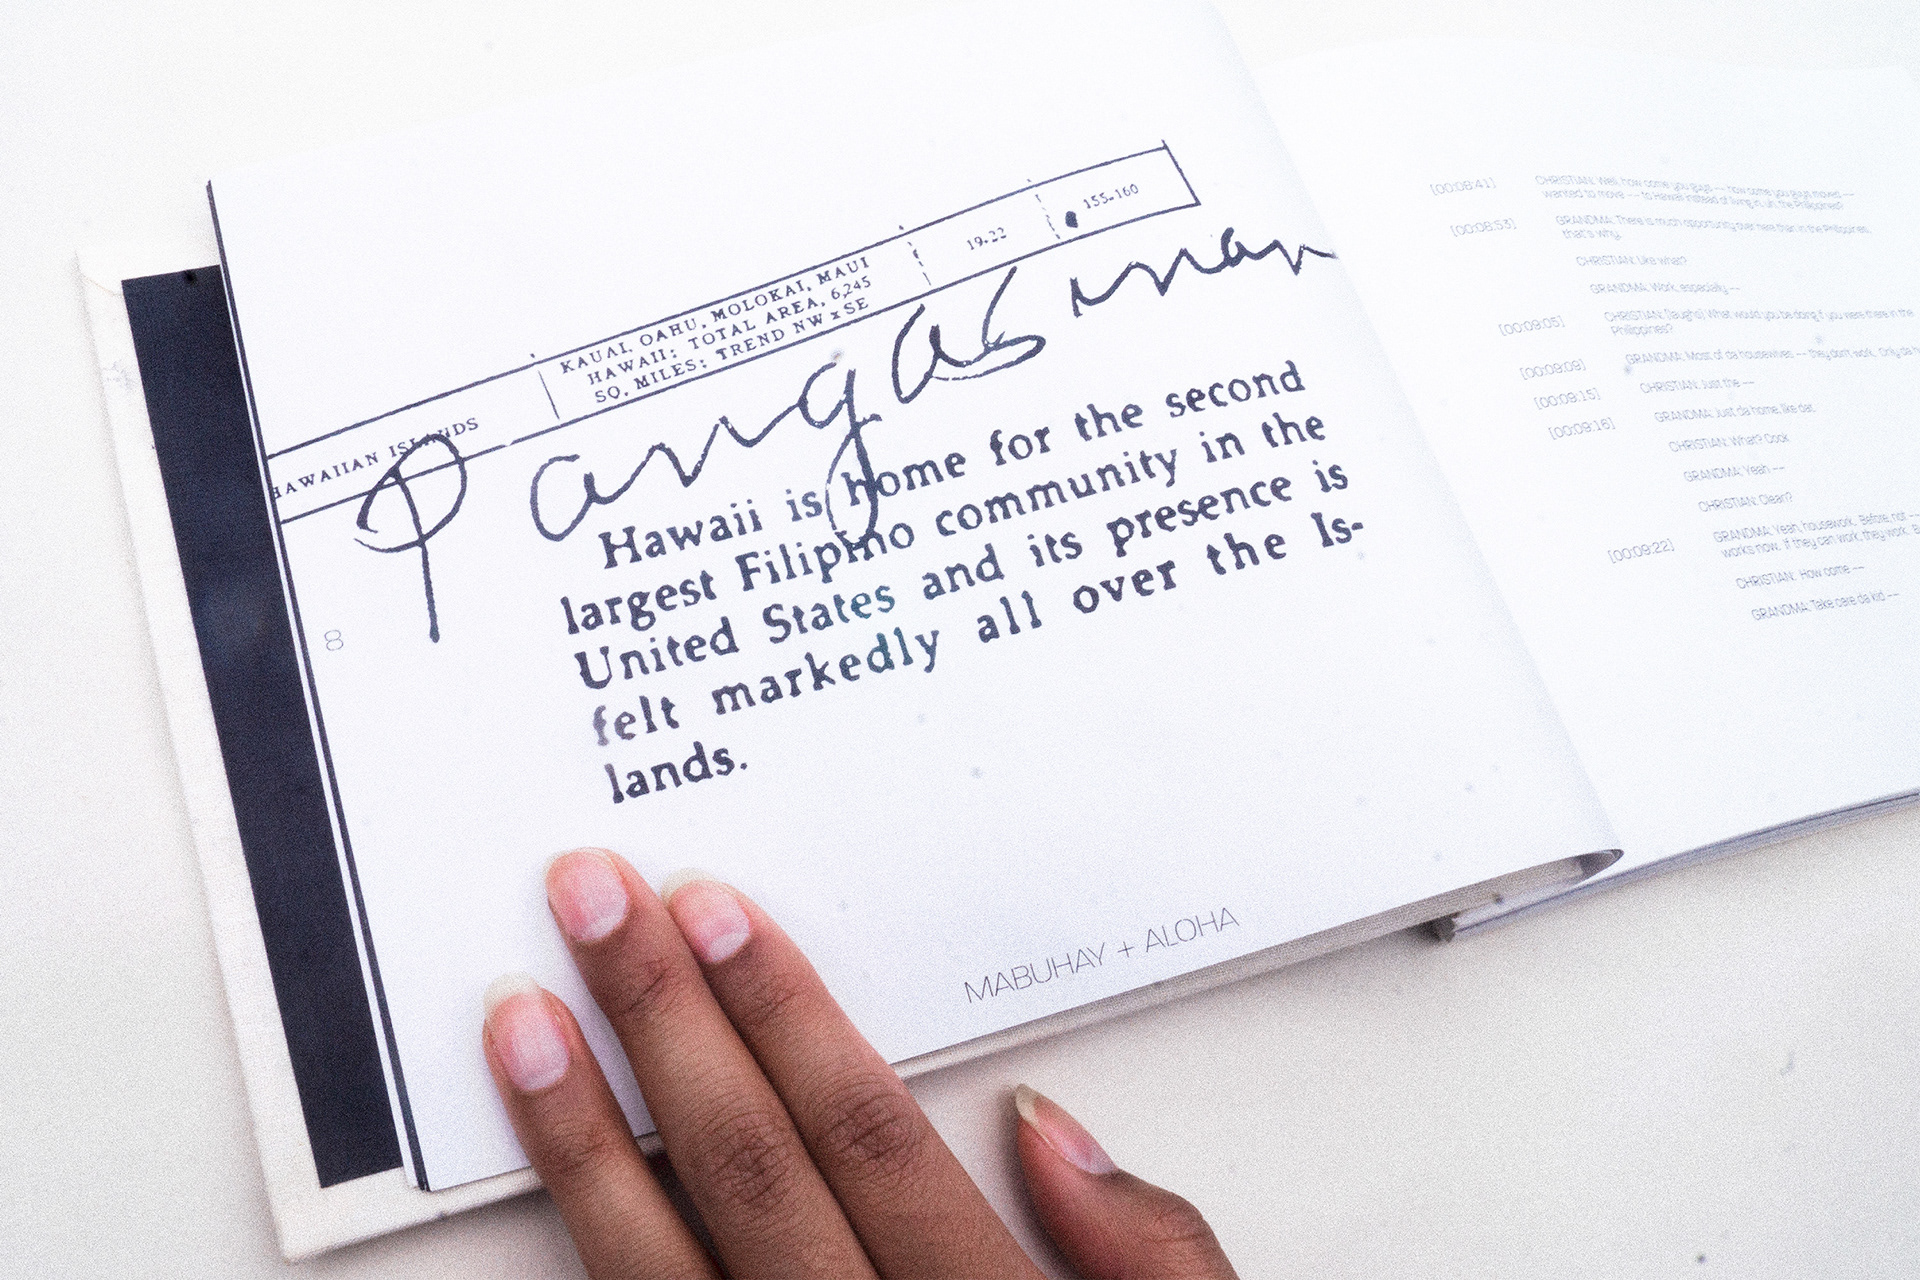 HAWAIIAN ISLANDS
KAUAI, OAHU, MOLOKAI, MAUI
HAWAII: TOTAL AREA, 6,245
SQ. MILES; TREND NW x SE
19-22
155-160
Pangasinan
Hawaii is home for the second
largest Filipino community in the
United States and its presence is
felt markedly all over the Is-
lands.
8
MABUHAY + ALOHA
[00:08:41] CHRISTIAN: Well, how come you guys -- how come you guys moved --
wanted to move -- to Hawaii instead of living in, uh, the Philippines?
[00:08:53] GRANDMA: There is much opportunity over here than in the Philippines
that's why.
CHRISTIAN: Like what?
GRANDMA: Work, especially --
[00:09:05] CHRISTIAN: [laughs] What would you be doing if you were there in the
Philippines?
[00:09:09] GRANDMA: Most of da housewives -- they don't work. Only da
[00:09:15] CHRISTIAN: Just the --
[00:09:16] GRANDMA: Just da home, like dat.
CHRISTIAN: What? Cook
GRANDMA: Yeah --
CHRISTIAN: Clean?
[00:09:22] GRANDMA: Yeah, housework. Before, not --
works now. If they can work, they work.
CHRISTIAN: How come --
GRANDMA: Take care da kid --